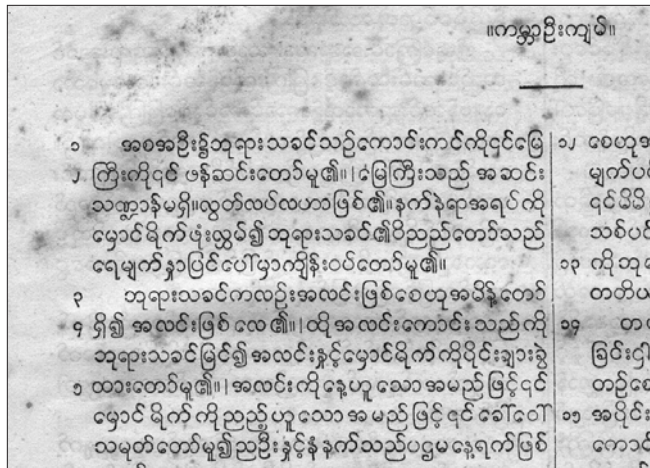 ။ကမ္ဘာဦးကျမ်။
၁ အစအဦး၌ဘုရားသခင်သည်ကောင်းကင်ကို၎င်မြေ
၂ ကြီးကို၎င် ဖန်ဆင်းတော်မူ၏။ ။မြေကြီးသည် အဆင်း
သဏ္ဌာန်မရှိ။လွတ်လပ်လဟာဖြစ်၏။နက်နဲရာအရပ်ကို
မှောင်မိုက်ဖုံးလွှမ်၍ဘုရားသခင်၏ဝိညည်တော်သည်
ရေမျက်နှာပြင်ပေါ်မှာကျိန်းဝပ်တော်မူ၏။
၃ ဘုရားသခင်ကလည်းအလင်းဖြစ်စေဟုအမိန့်တော်
၄ ရှိ၍ အလင်းဖြစ် လေ၏။ ။ထိုအလင်းကောင်းသည်ကို
ဘုရားသခင်မြင်၍အလင်းနှင့်မှောင်မိုက်ကိုပိုင်းချားခွဲ
၅ ထားတော်မူ၏။ ။အလင်းကိုနေ့ဟူသောအမည်ဖြင့်၎င်
မှောင်မိုက်ကိုညည့်ဟူသောအမည်ဖြင့်၎င်ခေါ်ဝေါ်
သမုတ်တော်မူ၍ညဦးနှင့်နံနက်သည်ပဌမနေ့ရက်ဖြစ်
၁၂ စေဟုအ
မျက်ပင်
၎င်မိမိ
သစ်ပင်
၁၃ ကိုဘု
တတိယ
၁၄ တ
ခြင်းငှါ
တည်စေ
၁၅ အပိုင်း
ကောင်